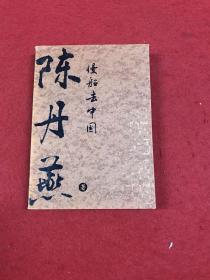 陈丹燕
慢船去中国
著